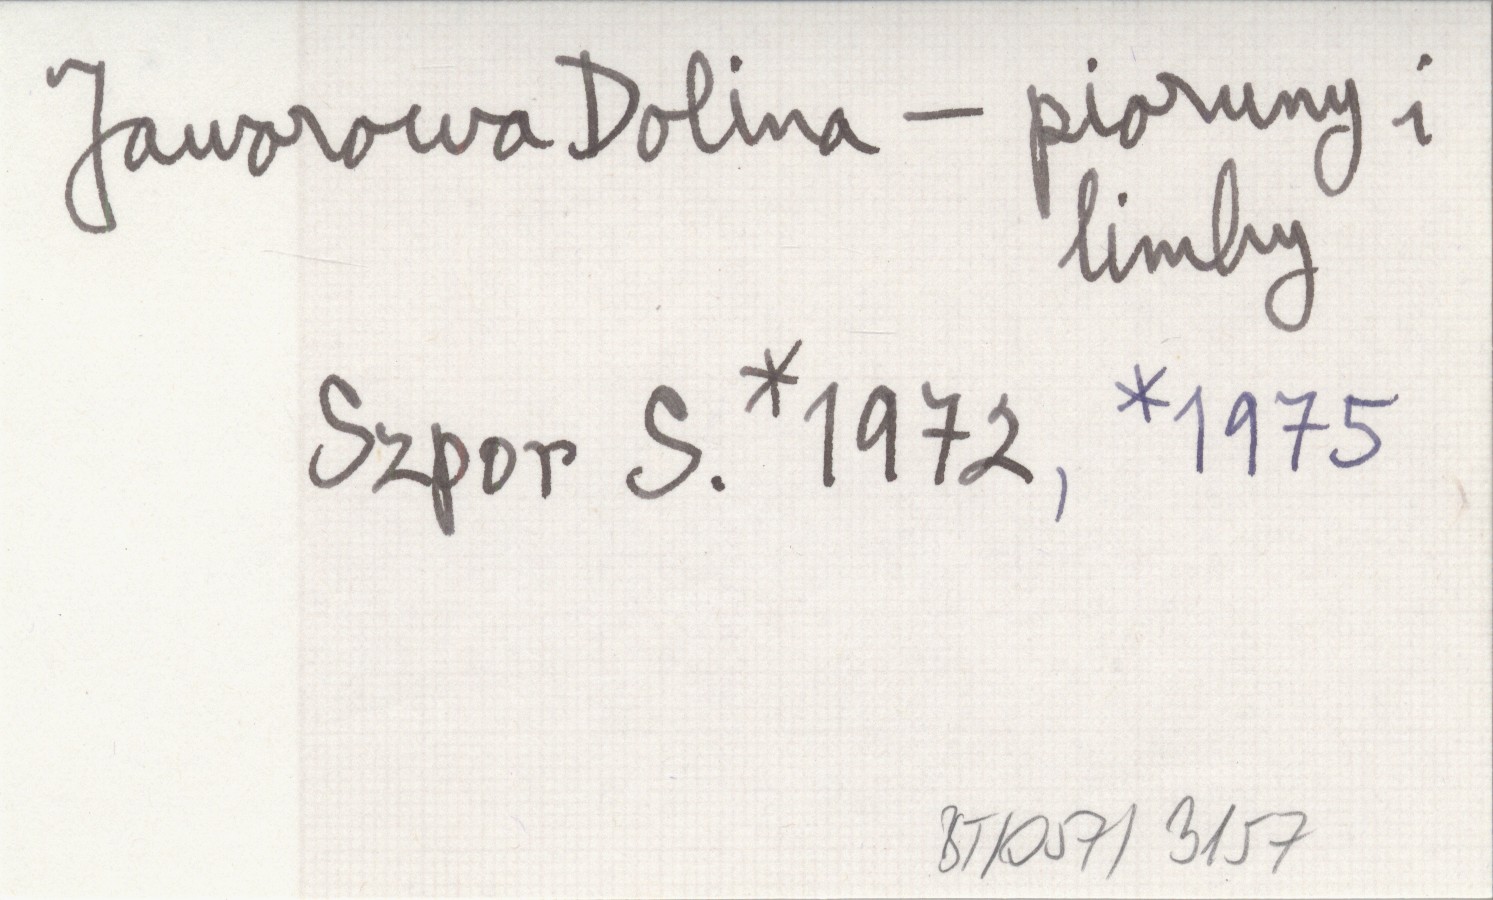 Jaworowa Dolina – pioruny i
limby
Szpor S. *1972, *1975
BT/057/ 3157